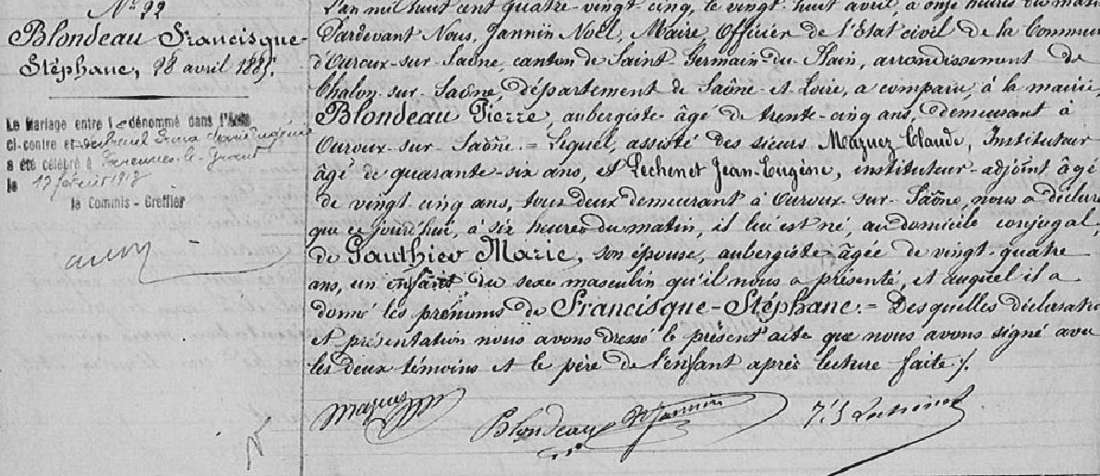 N° 22
Blondeau Francisque-
Stéphane, 28 avril 1885.
Le Mariage entre l dénommé dans l'Acte
ci-contre et
a été célébré à Varennes-le-Grand
le 17 février 1912
le Commis-Greffier
L'an mil huit cent quatre-vingt cinq, le vingt huit avril, à onze heures du matin
Pardevant Nous, Jannin Noël, Maire, Officier de l'Etat civil de la Commune
d'Ouroux-sur-Saône, canton de Saint Germain-du-Plain, arrondissement de
Chalon-sur-Saône, département de Saône-et-Loire, a comparu, à la mairie,
Blondeau Pierre, aubergiste âgé de trente-cinq ans, demeurant à
Ouroux-sur-Saône. = Lequel, assisté des sieurs Mazuez Claude, Instituteur
âgé de quarante-six ans, et Lechenet Jean-Eugène, instituteur-adjoint âgé
de vingt cinq ans, tous deux demeurant à Ouroux-sur-Saône, nous a déclaré
que ce jourd'hui, à six heures du matin, il lui est né, au domicile conjugal,
de Gauthier Marie, son épouse, aubergiste âgée de vingt-quatre
ans, un enfant du sexe masculin qu'il nous a présenté, et auquel il a
donné les prénoms de Francisque-Stéphane. = Desquelles déclaration
et présentation nous avons dressé le présent acte que nous avons signé avec
les deux témoins et le père de l'enfant après lecture faite ./.
Mazuez Blondeau N Jannin